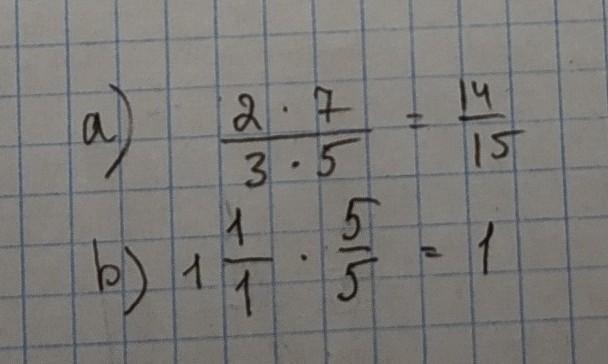 a) 2 · 7 / 3 · 5 = 14 / 15
b) 1 1/1 · 5/5 = 1